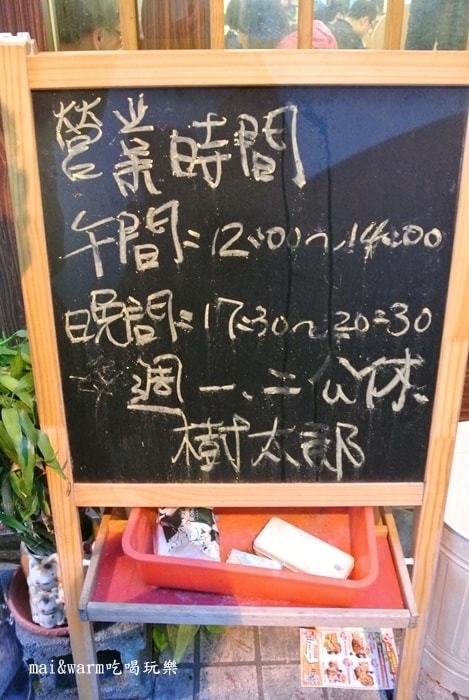 營業時間
午間:12:00~14:00
晚間:17:30~20:30
☆週一、二公休
樹太郎
mai&warm吃喝玩樂